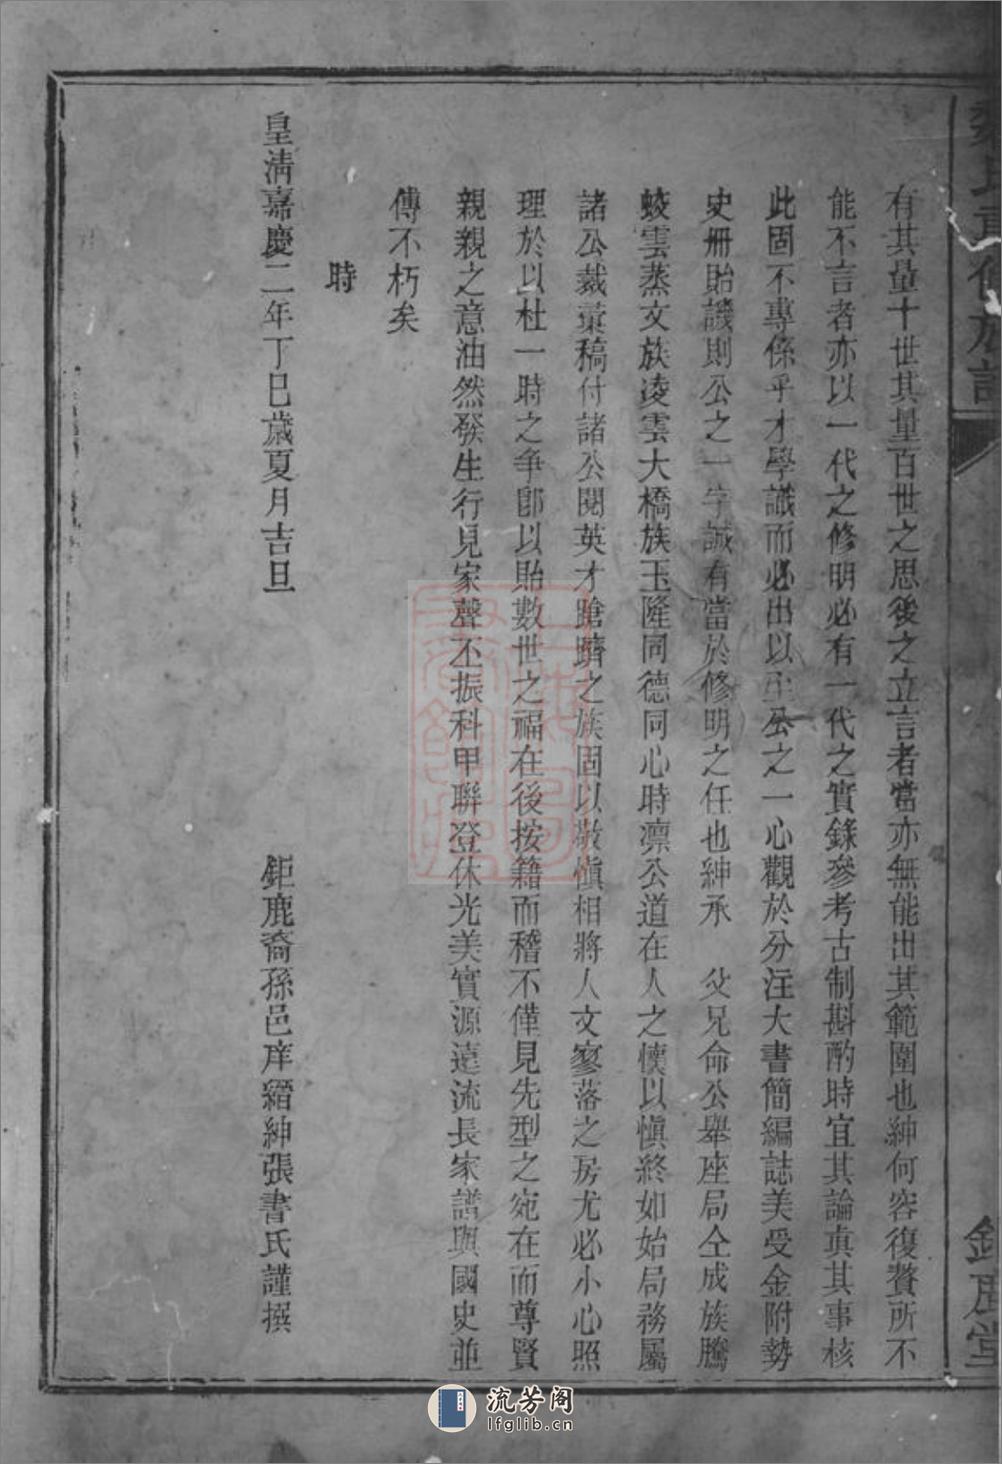 有其量十世其量百世之思後之立言者當亦無能出其範圍也紳何容復贅所不
能不言者亦以一代之修明必有一代之實錄參考古制斟酌時宜其論真其事核
此固不專係乎才學識而必出以至公之一心觀於分注大書簡編誌美受金附勢
史冊貽譏則公之一字誠有當於修明之任也紳承 父兄命公舉座局仝成族騰
蛟雲蒸文族凌雲大橋族玉隆同德同心時凛公道在人之懷以慎終如始局務屬
諸公裁稾稿付諸公閱英才蹌躋之族固以敬慎相將人文寥落之房尤必小心照
理於以杜一時之争卽以貽數世之福在後按籍而稽不僅見先型之宛在而尊賢
親親之意油然發生行見家聲丕振科甲聯登休光美實源遠流長家譜與國史並
傳不朽矣
時
皇淸嘉慶二年丁巳歲夏月吉旦 鉅鹿裔孫邑庠縉紳張書氏謹撰
氏重修族譜
鉅鹿堂
流芳阁
lfglib.cn